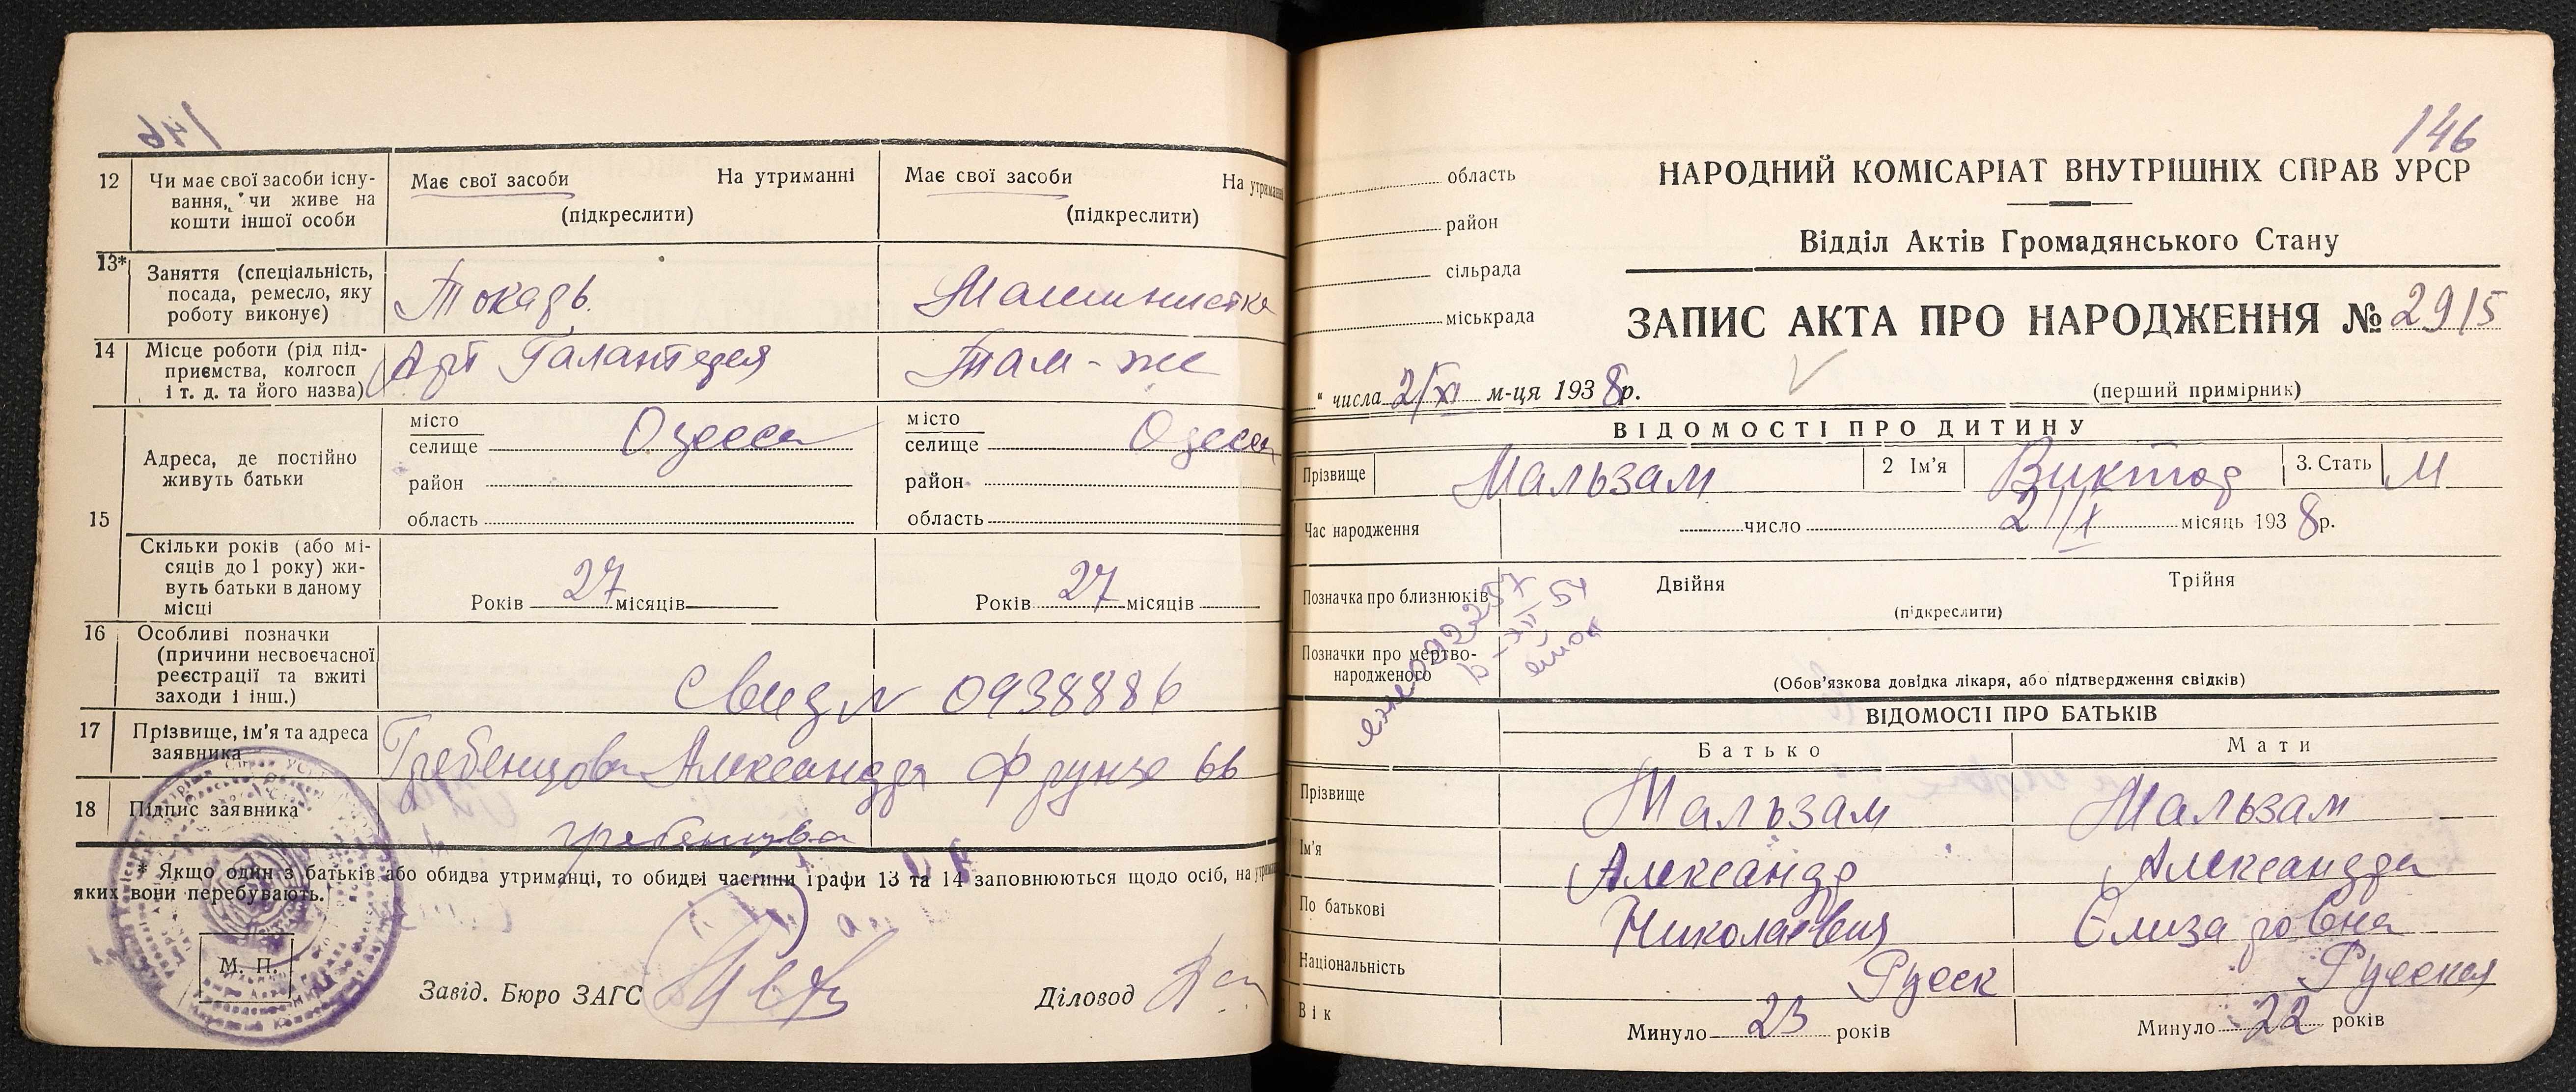 146
12
Чи має свої засоби існу-
вання, чи живе на
кошти іншої особи
Має свої засоби На утриманні
(підкреслити)
Має свої засоби На утриманні
(підкреслити)
13*
Заняття (спеціальність,
посада, ремесло, яку
роботу виконує)
Токарь.
Машинистка
14
Місце роботи (рід під-
приємства, колгосп
і т. д. та його назва)
Арт Галантерея
Там-же
15
Адреса, де постійно
живуть батьки
місто
селище Одесса
район
область
місто
селище Одесса
район
область
Скільки років (або мі-
сяців до 1 року) жи-
вуть батьки в даному
місці
Років 27 місяців
Років 27 місяців
16
Особливі позначки
(причини несвоєчасної
реєстрації та вжиті
заходи і інш.)
Свид № 0938886
17
Прізвище, ім'я та адреса
заявника
Гребенцова Александра Фрунзе 66
18
Підпис заявника
Гребенцова
* Якщо один з батьків або обидва утриманці, то обидві частини графи 13 та 14 заповнюються щодо осіб, на
яких вони перебувають.
М. П.
Завід. Бюро ЗАГС
Діловод
146
область
район
сільрада
міськрада
НАРОДНИЙ КОМІСАРІАТ ВНУТРІШНІХ СПРАВ УРСР
Відділ Актів Громадянського Стану
ЗАПИС АКТА ПРО НАРОДЖЕННЯ № 2915
" числа 2/XI м-ця 1938 р.
(перший примірник)
ВІДОМОСТІ ПРО ДИТИНУ
Прізвище Мальзам 2 Ім'я Виктор 3. Стать М
Час народження число 21/X місяць 1938 р.
Позначка про близнюків Двійня Трійня
(підкреслити)
Позначки про мертво-
народженого
(Обов'язкова довідка лікаря, або підтвердження свідків)
ВІДОМОСТІ ПРО БАТЬКІВ
Батько Мати
Прізвище Мальзам Мальзам
Ім'я Александр Александра
По батькові Николаевич Елизаровна
Національність Русск Русская
Вік Минуло 23 років Минуло 22 років